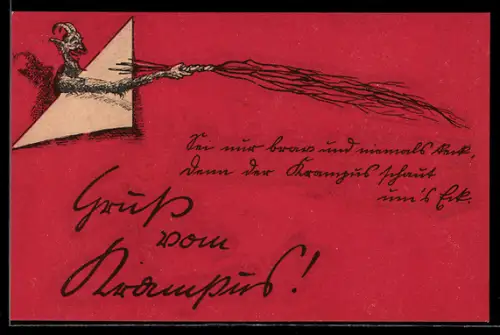 Sei nur brav und niemals keck,
denn der Krampus schaut
um's Eck.
Gruß
vom
Krampus!